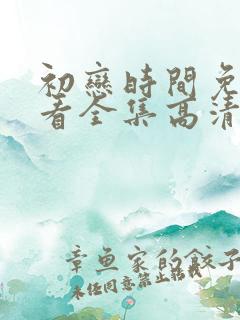 初戀時間免
看全集高清
章魚家的餃子
未经同意禁止转载